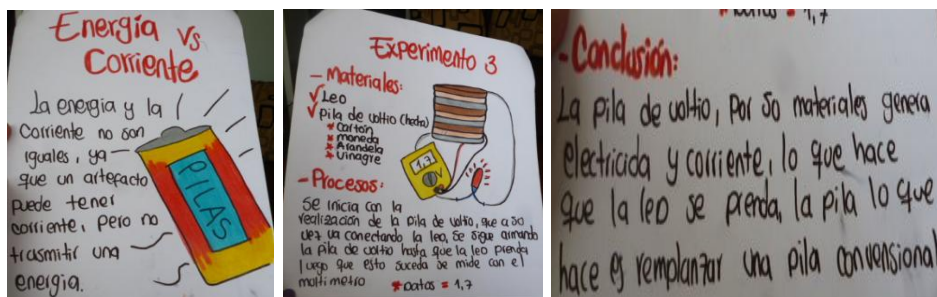 Energía vs
Corriente
La energia y la
corriente no son
iguales, ya
que un artefacto
puede tener
corriente, pero no
trasmitir una
energia.
PILAS
Experimento 3
- Materiales:
✓ Leo
✓ Pila de voltio (hecha)
* Cartón
* moneda
* Arandela
* Vinagre
1,7
V
- Procesos:
Se inicia con la
realización de la pila de voltio, que a so
vez va conectando la leo, se sigue armando
la pila de voltio hasta que la leo prenda
luego que esto suceda se mide con el
multimetro
* Datos = 1,7
* Datos = 1,7
- Conclusión:
La pila de voltio, por so materiales genera
electricida y corriente, lo que hace
que la leo se prenda, la pila lo que
hace es remplanzar una pila convensional